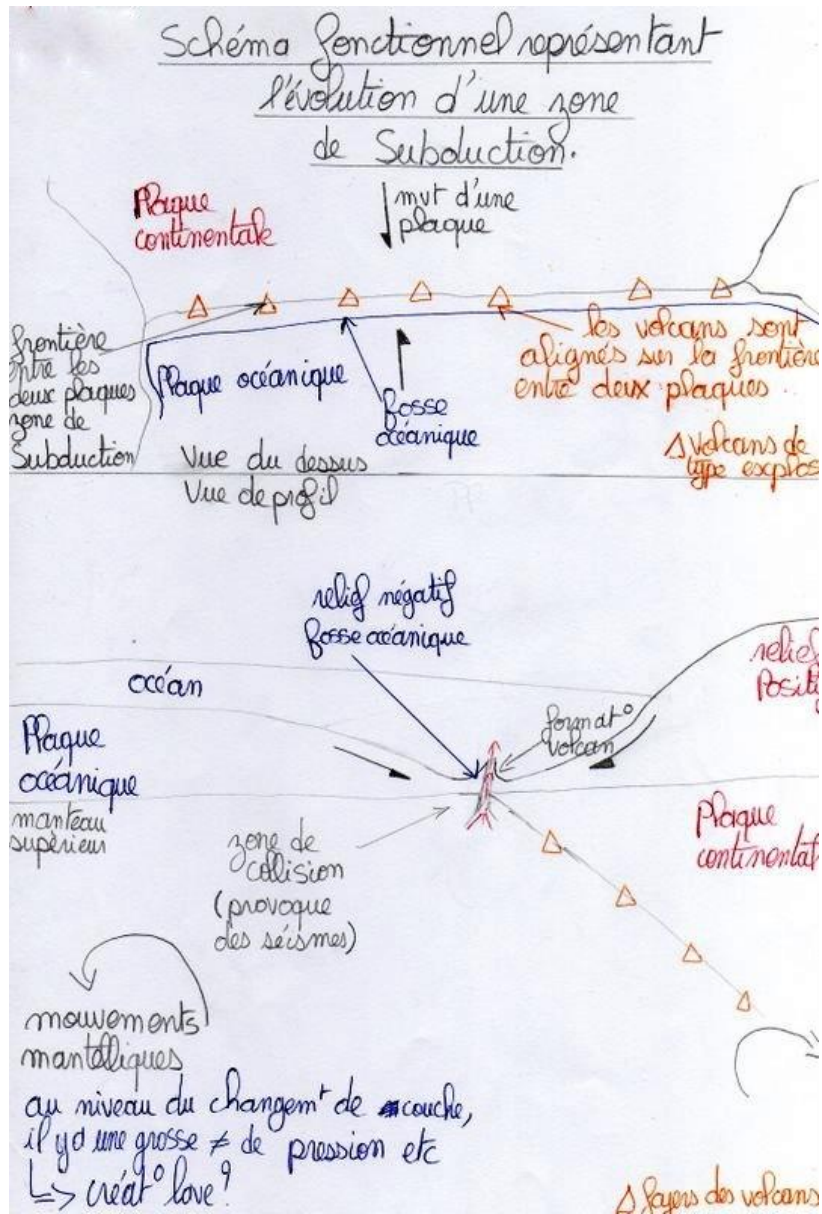 Schéma fonctionnel représentant
l'évolution d'une zone
de Subduction.
Plaque
continentale
mvt d'une
plaque
frontière
entre les
deux plaques
zone de
Subduction
Plaque océanique
fosse
océanique
les volcans sont
alignés sur la frontière
entre deux plaques.
Vue du dessus
volcans de
type explos
Vue de profil
relief négatif
fosse océanique
relief
Positi
océan
format°
volcan
Plaque
océanique
manteau
supèrieur
zone de
collision
(provoque
des séismes)
Plaque
continental
mouvements
mantelliques
au niveau du changemt de couche,
il y a une grosse ≠ de pression etc
↳> créat° lave?
foyers des volcans